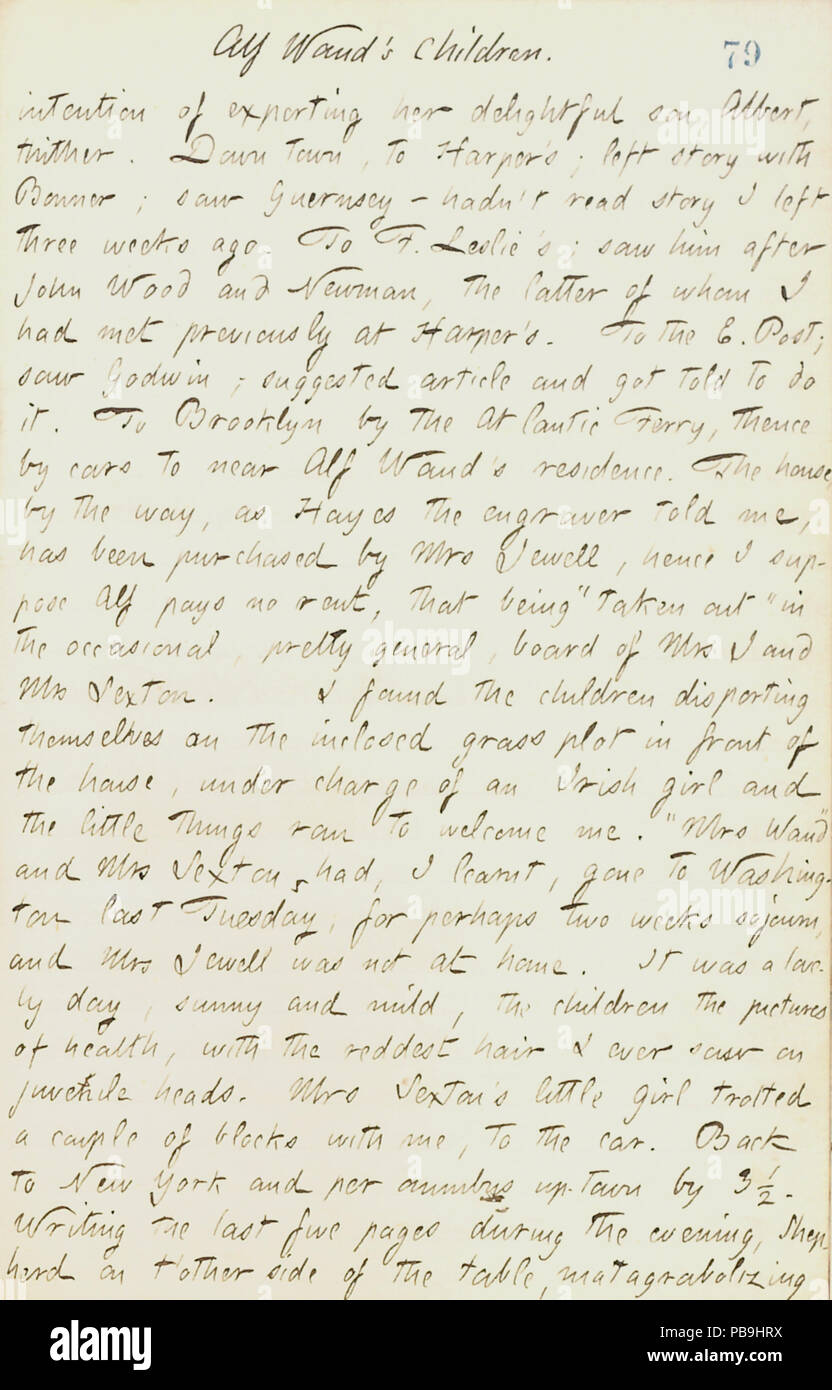 Alf Waud's Children.
79
intention of exporting her delightful son Albert,
thither. Down town, to Harper's; left story with
Bonner; saw Guernsey - hadn't read story I left
three weeks ago. To F. Leslie's; saw him after
John Wood and Newman, the latter of whom I
had met previously at Harper's. To the E. Post;
saw Godwin; suggested article and got told to do
it. To Brooklyn by the Atlantic Ferry, thence
by cars to near Alf Waud's residence. The house,
by the way, as Hayes the engraver told me,
has been purchased by Mrs Jewell, hence I sup-
pose Alf pays no rent, that being "taken out" in
the occasional, pretty general, board of Mrs J and
Mrs Sexton. I found the children disporting
themselves on the inclosed grass plot in front of
the house, under charge of an Irish girl and
the little things ran to welcome me. "Mrs Waud"
and Mrs Sexton, had, I learnt, gone to Washing-
ton last Tuesday, for perhaps two weeks sojourn,
and Mrs Jewell was not at home. It was a love-
ly day, sunny and mild, the children the pictures
of health, with the reddest hair I ever saw on
juvenile heads. Mrs Sexton's little girl trotted
a couple of blocks with me, to the car. Back
to New York and per omnibus up-town by 3 ½.
Writing the last five pages during the evening, Shep-
herd on t'other side of the table, matagrabolizing
alamy
alamy stock photo
PB9HRX
www.alamy.com